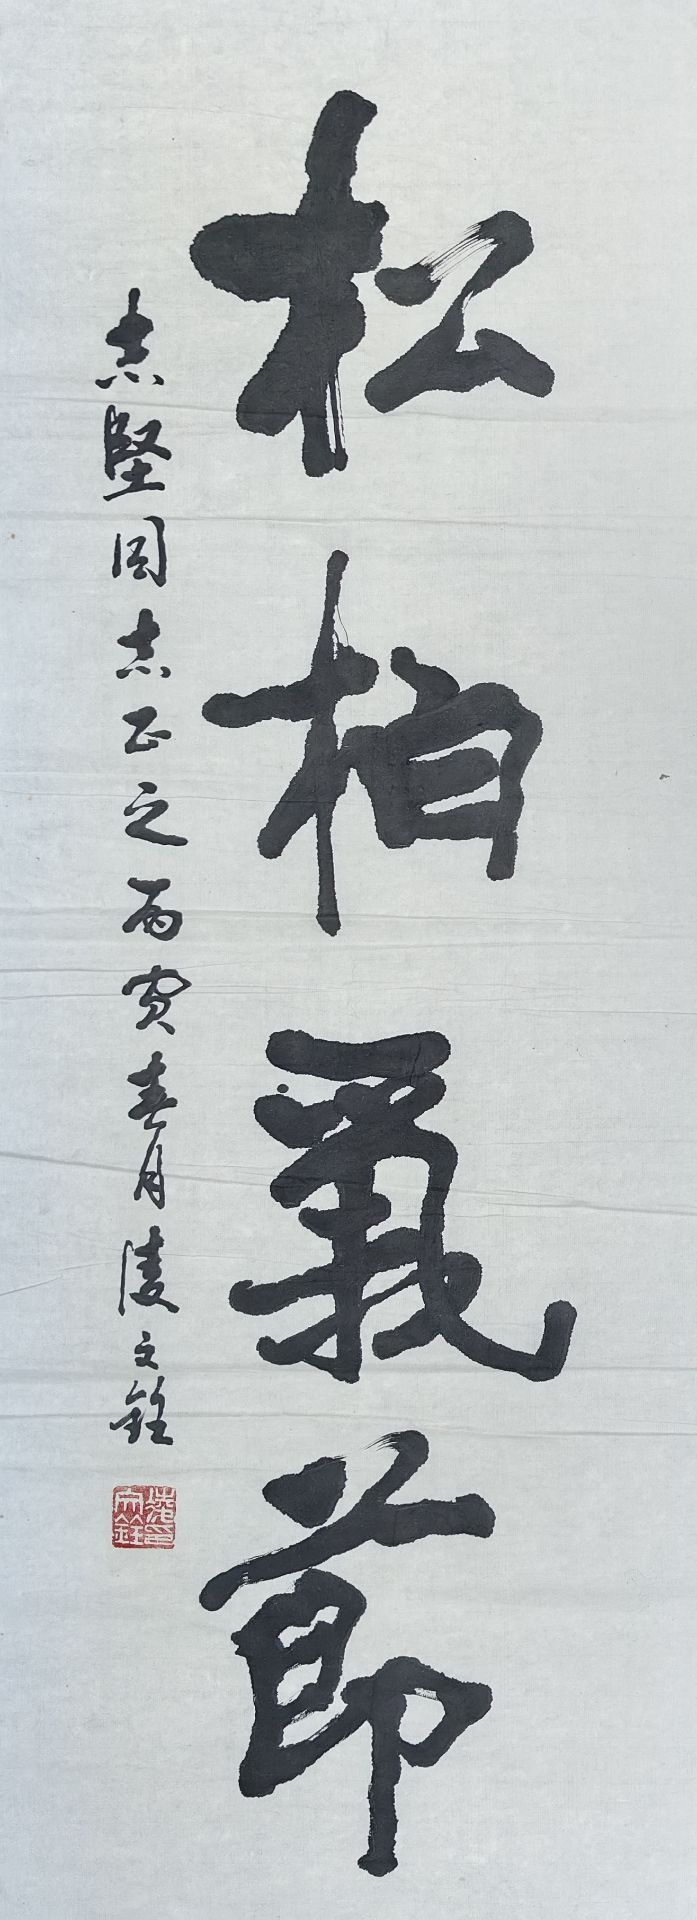 松柏氣節
志堅同志正之丙寅春月凌文銓